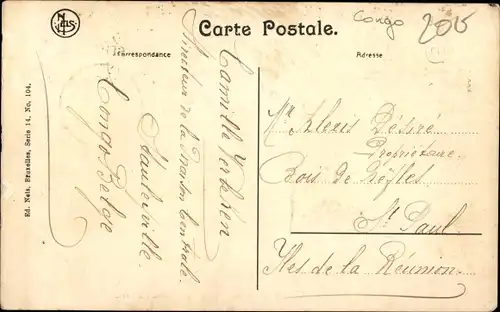 NELS
Carte Postale.
Congo
200
Correspondance
Adresse
Camille
Directeur de la Prison Centrale
Stanleyville
Congo-Belge
Mr Alexis Désiré
Propriétaire.
Bois de Nèfles
St Paul
Iles de la Réunion
Ed. Nels, Bruxelles, Serie 14, No. 104.